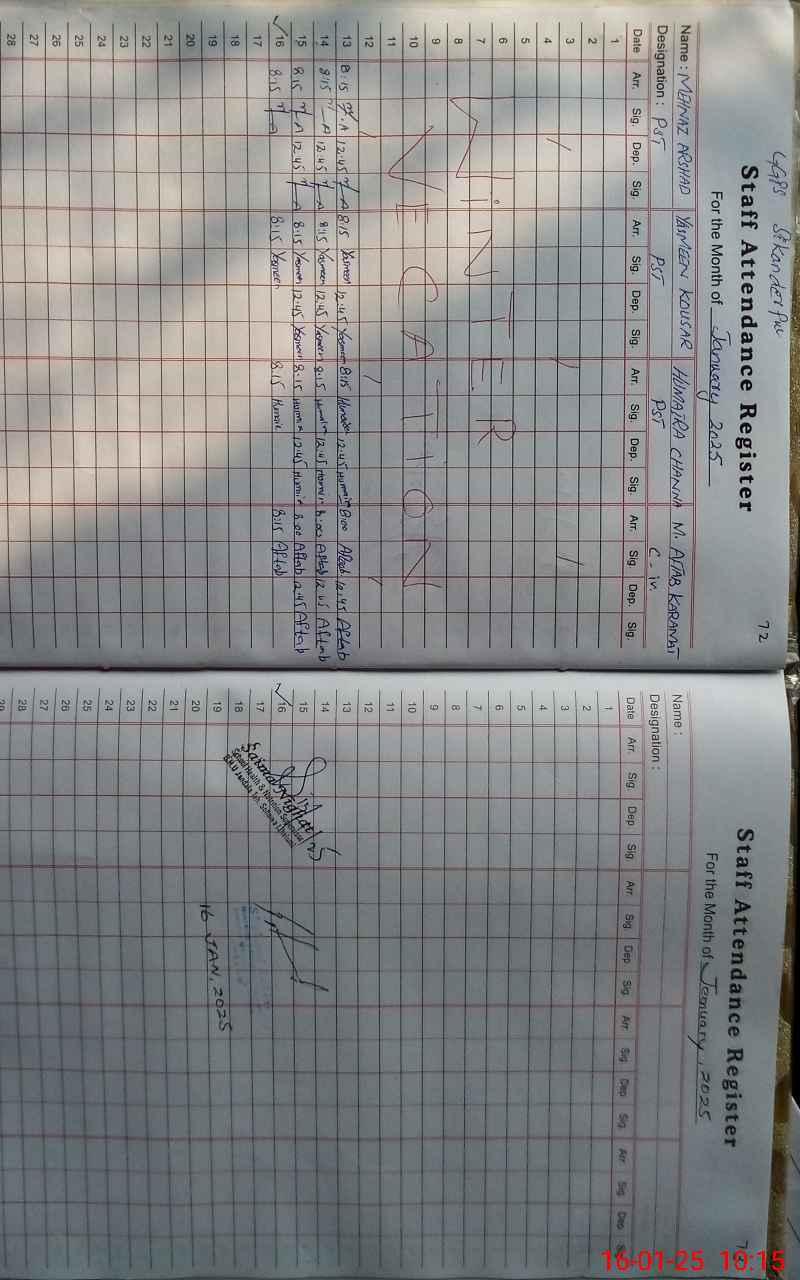 GGPS Sikanderpur
Staff Attendance Register
72
For the Month of January 2025
Name : MEHNAZ ARSHAD YASMEEN KOUSAR HUMAIRA CHANNA M. AFTAB KARAMAT
Designation : PST PST PST C-iv.
Date Arr. Sig. Dep. Sig. Arr. Sig. Dep. Sig. Arr. Sig. Dep. Sig. Arr. Sig. Dep. Sig.
1
2
3
4
5
6
7 WINTER
8
9
10 VECATION
11
12
13 8:15 12:45 8:15 Yasmeen 12:45 Yasmeen 8:15 Humaira 12:45 Humaira 8:00 Aftab 12:45 Aftab
14 8:15 12:45 8:15 Yasmeen 12:45 Yasmeen 8:15 Humaira 12:45 Humaira 8:00 Aftab 12:45 Aftab
15 8:15 12:45 8:15 Yasmeen 12:45 Yasmeen 8:15 Humaira 12:45 Humaira 8:00 Aftab 12:45 Aftab
16 8:15 8:15 Yasmeen 8:15 Humaira 8:15 Aftab
17
18
19
20
21
22
23
24
25
26
27
28
Staff Attendance Register
For the Month of January, 2025
Name :
Designation :
Date Arr. Sig. Dep Sig. Arr. Sig. Dep Sig. Arr. Sig. Dep Sig. Arr. Sig. Dep
1
2
3
4
5
6
7
8
9
10
11
12
13
14
15
16
17
18
19
20
21
22
23
24
25
26
27
28
29
Saimah Nighat
School Health & Nutrition Supervisor
16 JAN, 2025
16-01-25 10:15